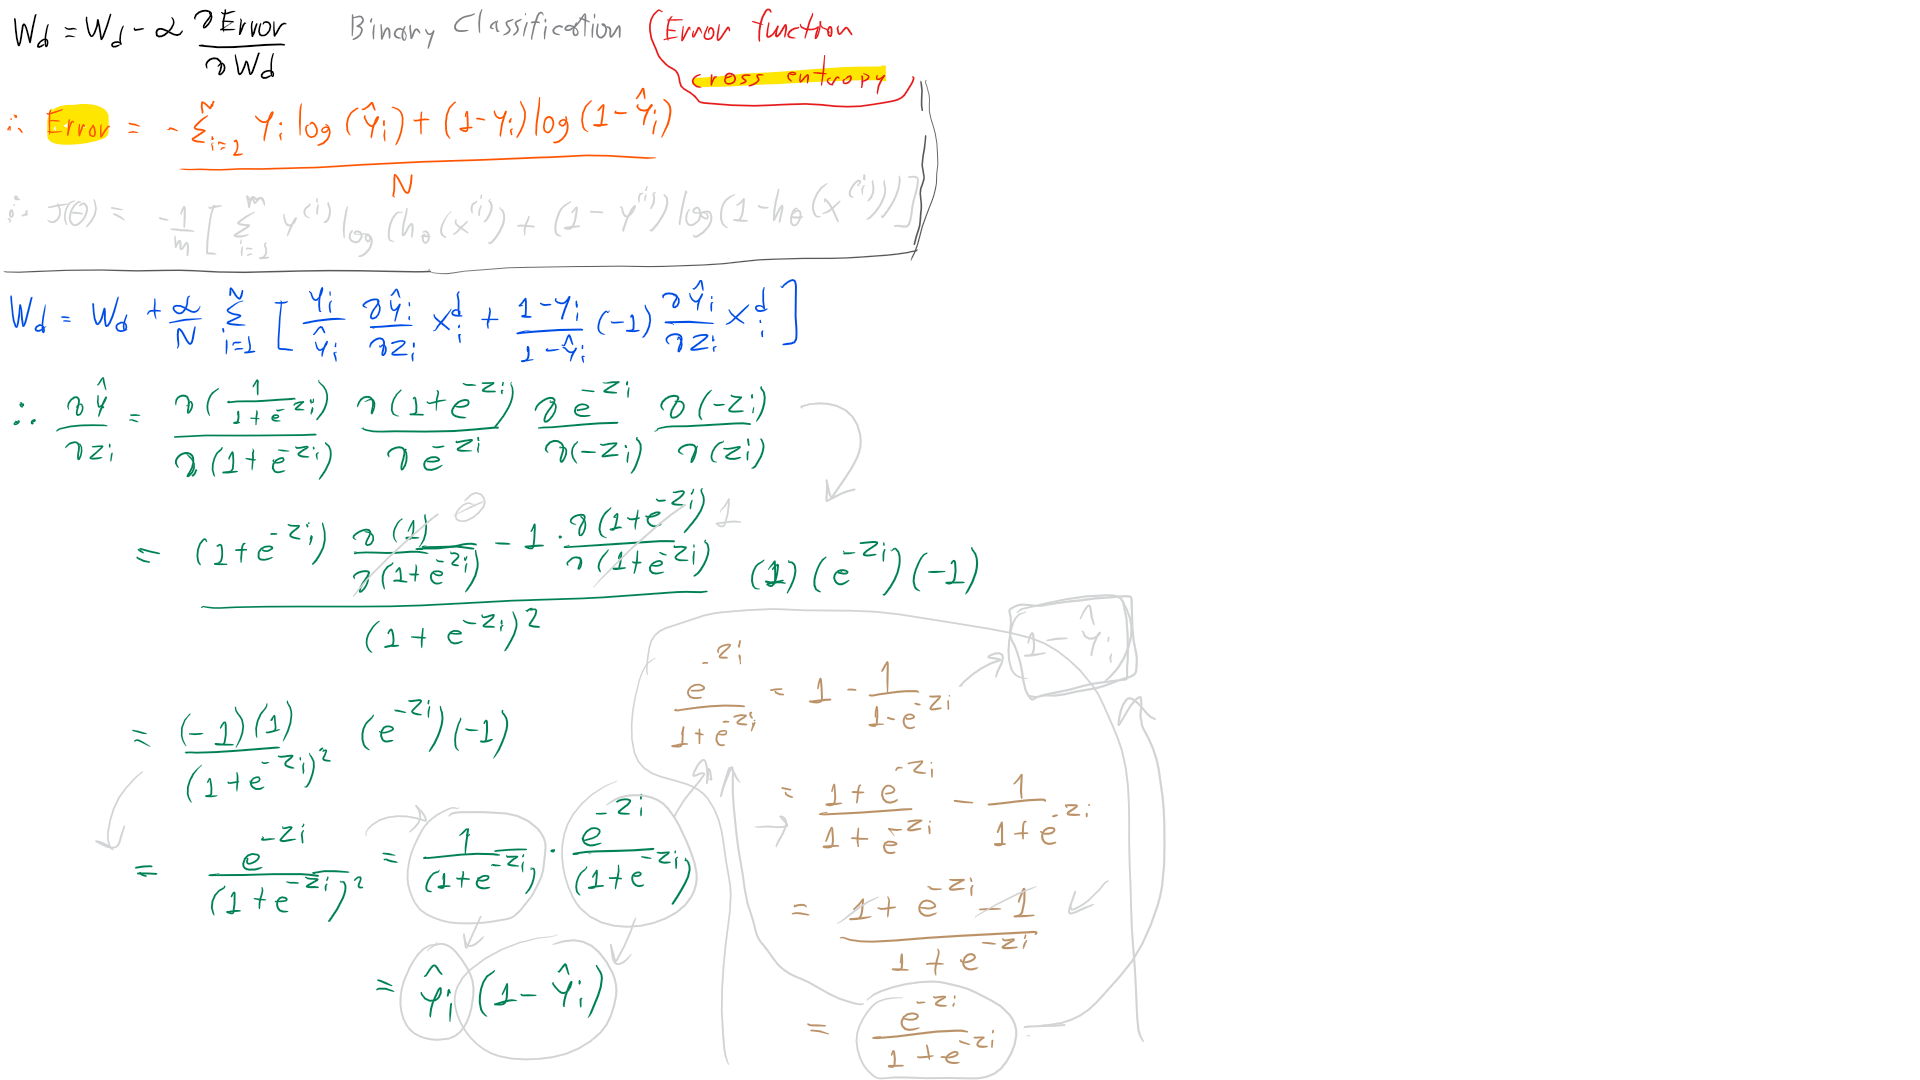 W_d = W_d - α ∂Error/∂W_d   Binary Classification   Error function
cross entropy
∴ Error = - Σ_{i=1}^{N} y_i log(ŷ_i) + (1-y_i) log(1-ŷ_i) / N
∴ J(θ) = -1/m [ Σ_{i=1}^{m} y^{(i)} log(h_θ(x^{(i)}) + (1-y^{(i)}) log(1-h_θ(x^{(i)})) ]
W_d = W_d + α/N Σ_{i=1}^{N} [ y_i/ŷ_i ∂ŷ_i/∂z_i x_i^d + (1-y_i)/(1-ŷ_i) (-1) ∂ŷ_i/∂z_i x_i^d ]
∴ ∂ŷ/∂z_i = ∂(1/(1+e^{-z_i}))/∂(1+e^{-z_i}) ∂(1+e^{-z_i})/∂e^{-z_i} ∂e^{-z_i}/∂(-z_i) ∂(-z_i)/∂(z_i)
= [ (1+e^{-z_i}) ∂(1)/∂(1+e^{-z_i}) 0 - 1 · ∂(1+e^{-z_i})/∂(1+e^{-z_i}) 1 ] / (1+e^{-z_i})^2 (1)(e^{-z_i})(-1)
= (-1)(1)/(1+e^{-z_i})^2 (e^{-z_i})(-1)
= e^{-z_i}/(1+e^{-z_i})^2 = 1/(1+e^{-z_i}) · e^{-z_i}/(1+e^{-z_i})
= ŷ_i (1-ŷ_i)
e^{-z_i}/(1+e^{-z_i}) = 1 - 1/(1-e^{-z_i})   1-ŷ_i
= (1+e^{-z_i})/(1+e^{-z_i}) - 1/(1+e^{-z_i})
= (1+e^{-z_i}-1)/(1+e^{-z_i})
= e^{-z_i}/(1+e^{-z_i})